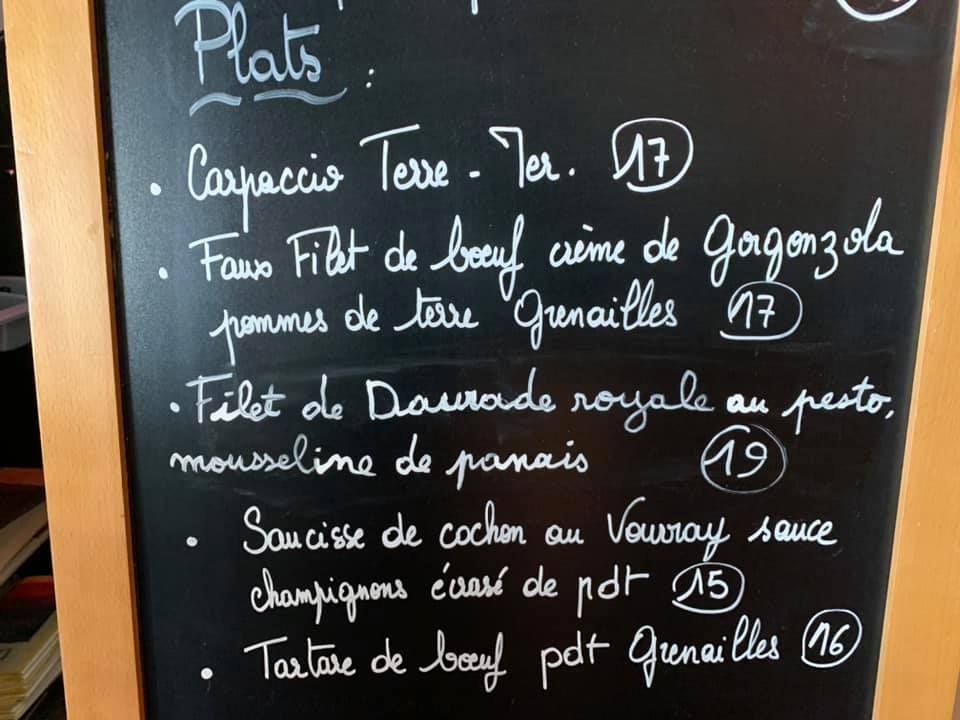 Plats :
• Carpaccio Terre - Mer. 17
• Faux Filet de bœuf crème de Gorgonzola
pommes de terre Grenailles 17
• Filet de Daurade royale au pesto,
mousseline de panais 19
• Saucisse de cochon au Vouvray sauce
champignons écrasé de pdt 15
• Tartare de bœuf pdt Grenailles 16